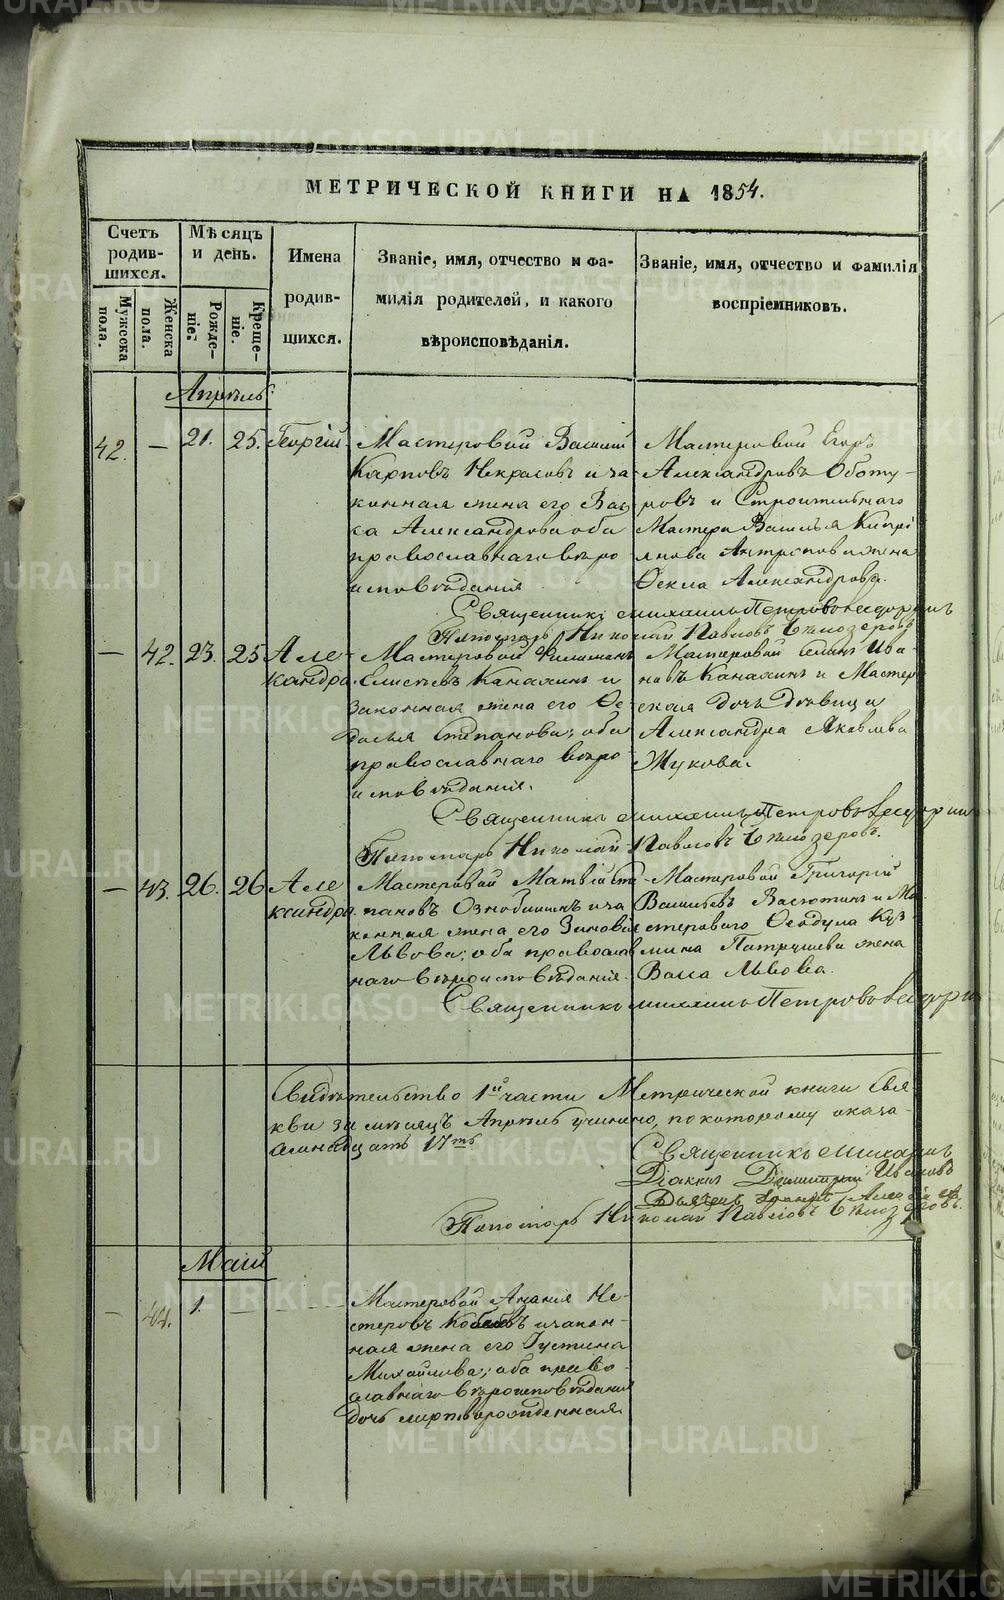 МЕТРИЧЕСКОЙ КНИГИ НА 1854.
Счетъ родив-шихся.
Мужеска пола.
Женска пола.
Мѣсяцъ и день.
Рожде-ніе.
Креще-ніе.
Имена родив-шихся.
Званіе, имя, отчество и фа-
милія родителей, и какого
вѣроисповѣданія.
Званіе, имя, отчество и фамилія
воспріемниковъ.
Апрѣль
42. — 21. 25. Георгій
Мастеровой Василий
Карповъ Некрасовъ и за
конная жена его Вас
са Александрова оба
православнаго вѣро
исповѣданія
Мастеровой Егоръ
Александровъ Оботу-
ровъ и Строительнаго
Мастера Василья Кипрі
янова Антропова жена
Ѳекла Александрова.
Священникъ Михаилъ Петровъ
Пономарь Николай Павловъ Бѣлозеровъ
— 42. 23. 25 Але-
ксандра
Мастеровой Филимонъ
Елисѣевъ Канахинъ и
законная жена его Ѳе-
досья Степанова, оба
православнаго вѣро
исповѣданія.
Мастеровой Ива-
новъ Канахинъ и Мастер
ская дочь дѣвица
Александра Яковлева
Жукова.
Священникъ Михаилъ Петровъ
Пономарь Николай Павловъ Бѣлозеровъ.
— 43. 26. 26 Але
ксандра
Мастеровой Матвій Сте-
пановъ Ознобишинъ и за
конная жена его Зиновія
Львова, оба православ
наго вѣроисповѣданія.
Мастеровой Григорій
Васильевъ Васютинъ и Ма
стероваго Ѳеодула Куз
мина Патрушева жена
Васса Львова.
Священникъ Михаилъ Петровъ
Свидѣтельство 1й части Метрической книги
за мѣсяцъ Апрѣль учинено, по которому оказа-
17ть
Священникъ Михаилъ
Діаконъ Димитрій Ивановъ
Пономарь Николай Павловъ Бѣлозеровъ.
Маій
— 44. 1. —
Мастеровой Ананія Не-
стеровъ и закон-
ная жена его Густина
Михайлова, оба право-
славнаго вѣроисповѣданія
дочь мертворожденная
METRIKI.GASO-URAL.RU